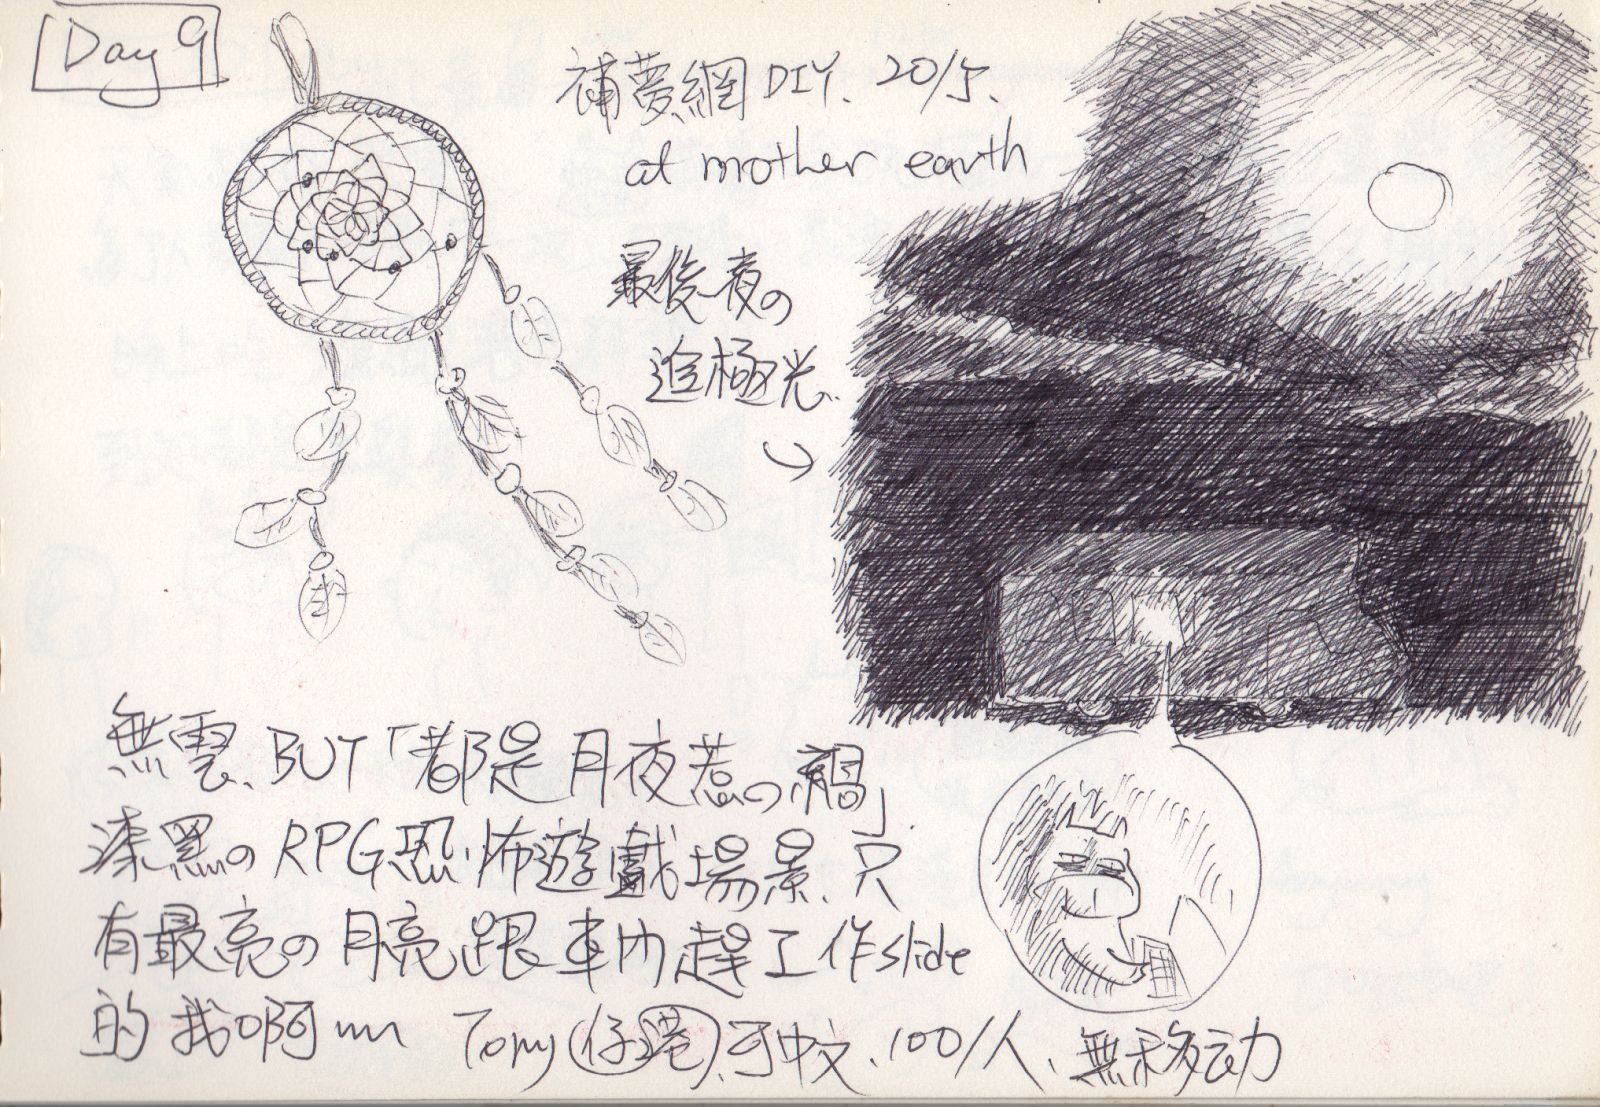 Day 9
補夢網DIY、20/5、
at mother earth
最後夜の
追極光、
無雲、BUT「都是月夜惹の禍」
漆黑のRPG恐怖遊戲場景、只
有最亮の月亮跟車內趕工作slide
的我啊
Tony (仔港)、可中文、100/人、無移动